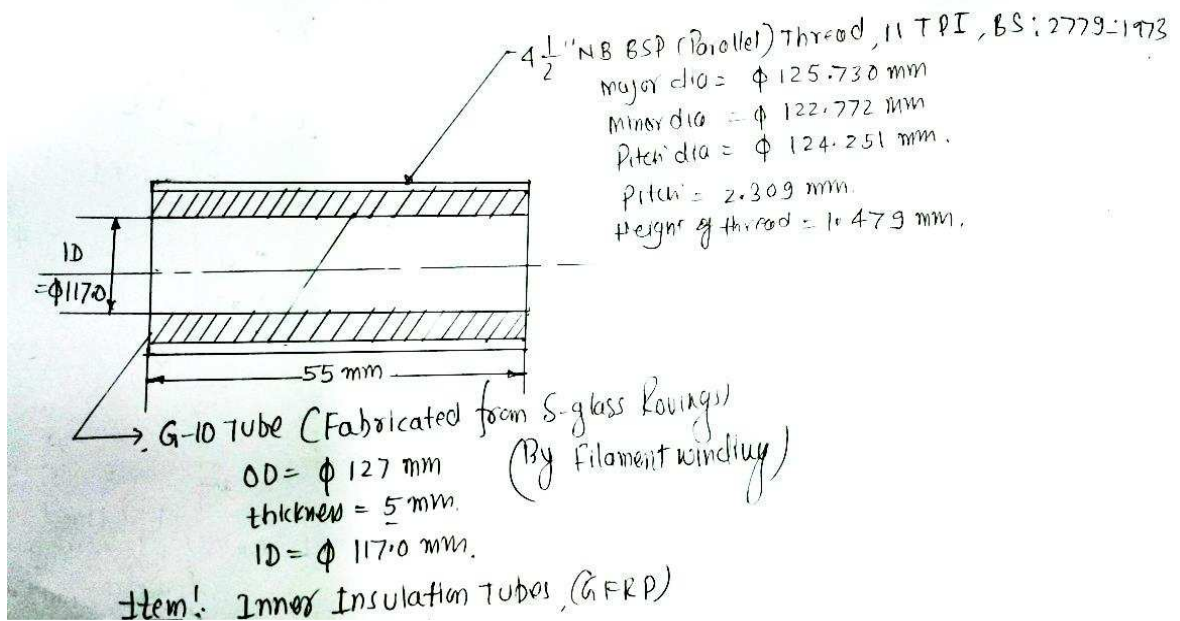 4 1/2" NB BSP (Parallel) Thread, 11 TPI, BS: 2779-1973
Major dia = ϕ 125.730 mm
Minor dia = ϕ 122.772 mm
Pitch dia = ϕ 124.251 mm.
Pitch = 2.309 mm.
Height of thread = 1.479 mm.
ID
=ϕ117.0
55 mm
G-10 Tube (Fabricated from S-glass Rovings)
(By Filament winding)
OD = ϕ 127 mm
thickness = 5 mm.
ID = ϕ 117.0 mm.
Item: Inner Insulation Tubes, (GFRP)